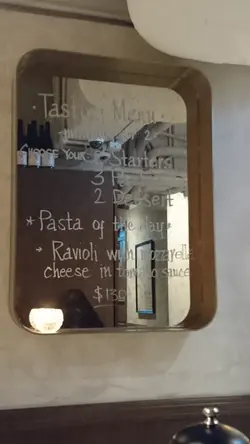 · Tasting Menu ·
minimum 2
Choose your Starters
3
2 Dessert
*Pasta of the day*
* Ravioli with mozzarella
cheese in tomato sauce